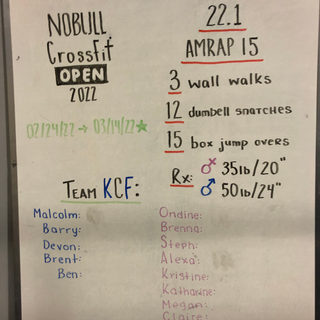 NOBULL
CrossFit
OPEN
2022
02/24/22 → 03/14/22 ★
22.1
AMRAP 15
3 wall walks
12 dumbell snatches
15 box jump overs
Rx: ♀ 35lb/20"
♂ 50lb/24"
TEAM KCF:
Malcolm:
Barry:
Devon:
Brent:
Ben:
Ondine:
Brenna:
Steph:
Alexa:
Kristine:
Katharine:
Megan:
Claire: